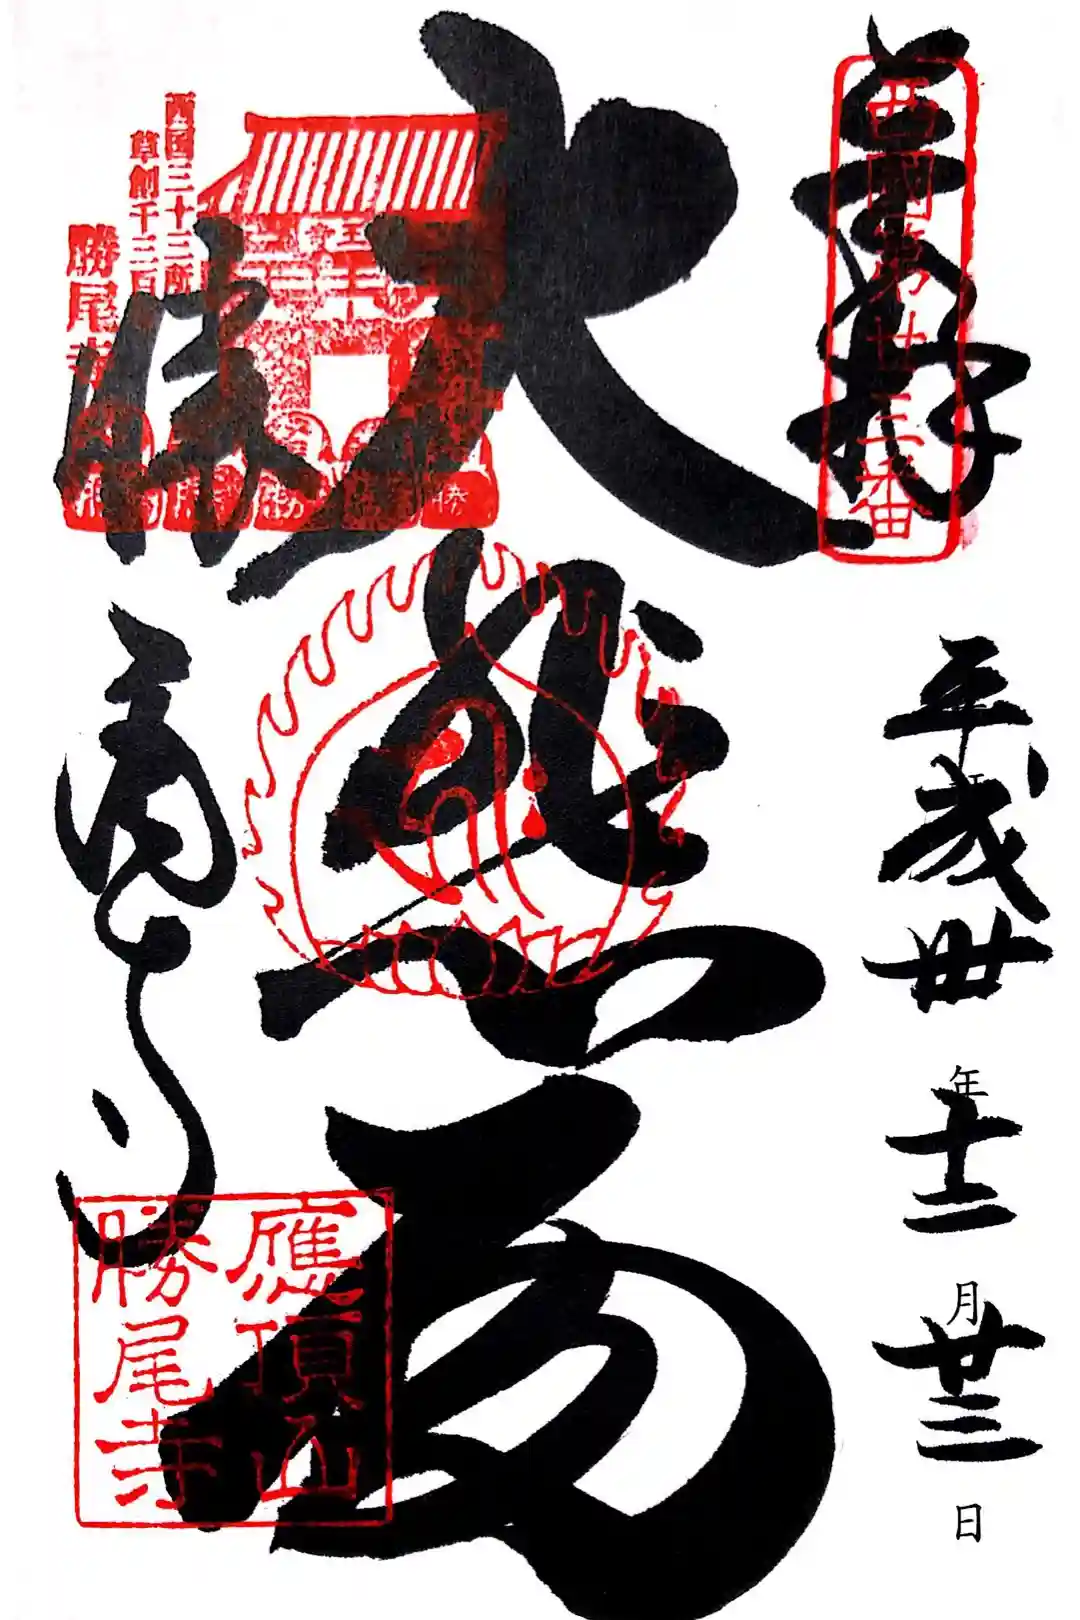 奉拝
西国第廿三番
平成卅年十二月廿三日
大悲閣
西国三十三所
草創千三百
勝尾寺
勝尾寺
應頂山
勝尾寺